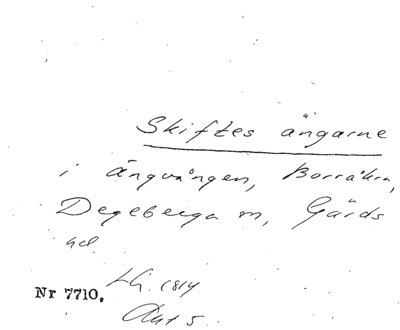 Skiftes ängarne
i Ängvången, Borråkra,
Degeberga sn, Gärds
hd.
Nr 7710. LG. 1814
Akt 5